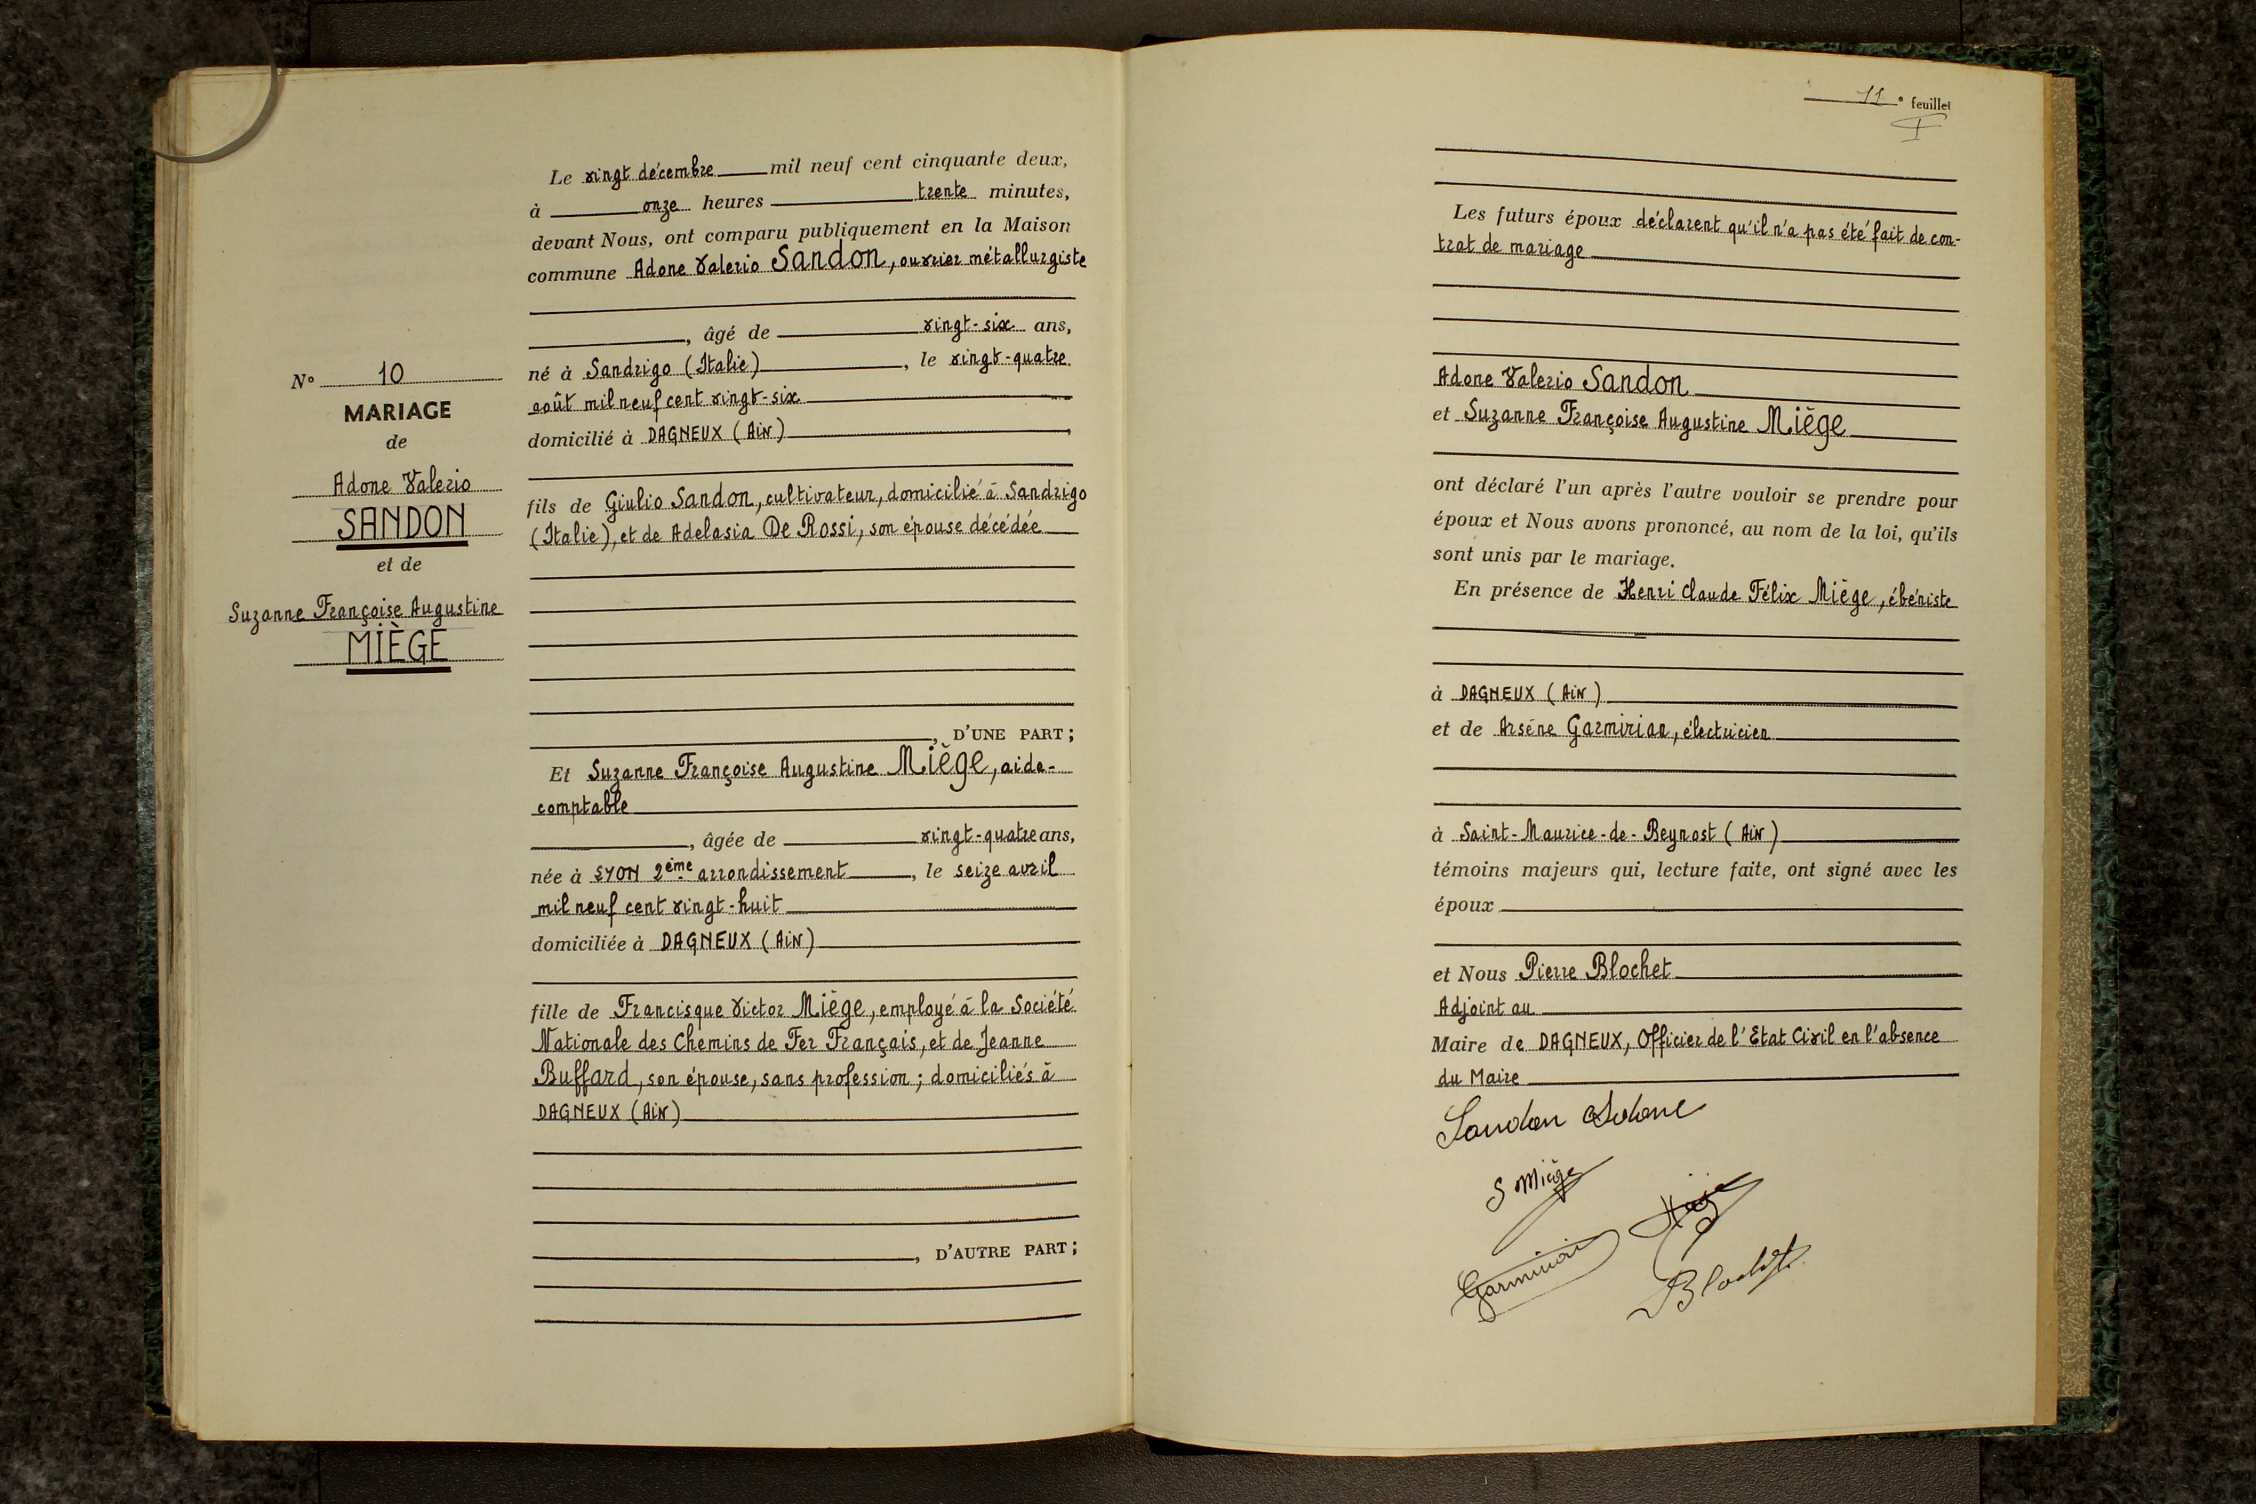 Le vingt décembre mil neuf cent cinquante deux,
à onze heures trente minutes,
devant Nous, ont comparu publiquement en la Maison
commune Adone Valerio Sandon, ouvrier métallurgiste
, âgé de vingt-six ans,
né à Sandrigo (Italie), le vingt-quatre
août mil neuf cent vingt-six
domicilié à DAGNEUX (AiN)
fils de Giulio Sandon, cultivateur, domicilié à Sandrigo
(Italie), et de Adelasia De Rossi, son épouse décédée
, D'UNE PART;
Et Suzanne Françoise Augustine Miège, aide-
comptable
, âgée de vingt-quatre ans,
née à LYON 2ème arrondissement, le seize avril
mil neuf cent vingt-huit
domiciliée à DAGNEUX (AiN)
fille de Francisque Victor Miège, employé à la Société
Nationale des Chemins de Fer Français, et de Jeanne
Buffard, son épouse, sans profession; domiciliés à
DAGNEUX (AiN)
, D'AUTRE PART;
N° 10
MARIAGE
de
Adone Valerio
SANDON
et de
Suzanne Françoise Augustine
MIÈGE
11e feuillet
Les futurs époux déclarent qu'il n'a pas été fait de con-
trat de mariage
Adone Valerio Sandon
et Suzanne Françoise Augustine Miège
ont déclaré l'un après l'autre vouloir se prendre pour
époux et Nous avons prononcé, au nom de la loi, qu'ils
sont unis par le mariage.
En présence de Henri Claude Félix Miège, ébéniste
à DAGNEUX (AiN)
et de Arsène Garmirian, électricien
à Saint-Maurice-de-Beynost (AiN)
témoins majeurs qui, lecture faite, ont signé avec les
époux
et Nous Pierre Blochet
Adjoint au
Maire de DAGNEUX, Officier de l'Etat Civil en l'absence
du Maire
Sandon Adone
S Miège
Miège
Garmirian
Blochet